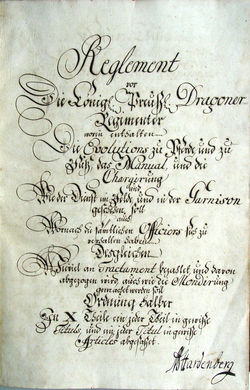 Reglement
vor
Die Königl. Preußl. Dragoner
Regimenter
worin enthalten
Die Evolutions zu Pferde und zu
Fuß, das Manual, und die
Chargirung
und
Wie der Dienst im Felde und in der Garnison
geschehen soll
auch
Wornach die sämtlichen Officiers sich zu
verhalten haben.
Desgleichen
Wieviel an Tractament bezahlet und davon
abgezogen wird, auch wie die Mondirung
gemachet werden soll
Ordnung halber
In X Theile ein jeder Theil in gewisse
Tituls, und ein jeder Titul in gewisse
Articles abgefaßet.
Hardenberg